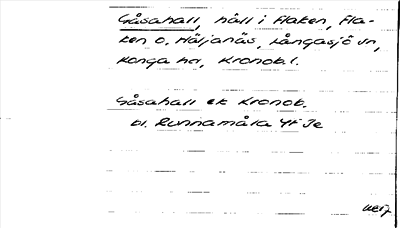 Gåsahall, häll i Flaken, Fla-
ken o. Häljanäs, Långasjö sn,
Konga hd, Kronob. l.
Gåsahall ek Kronob.
bl. Runnamåla 4f Je